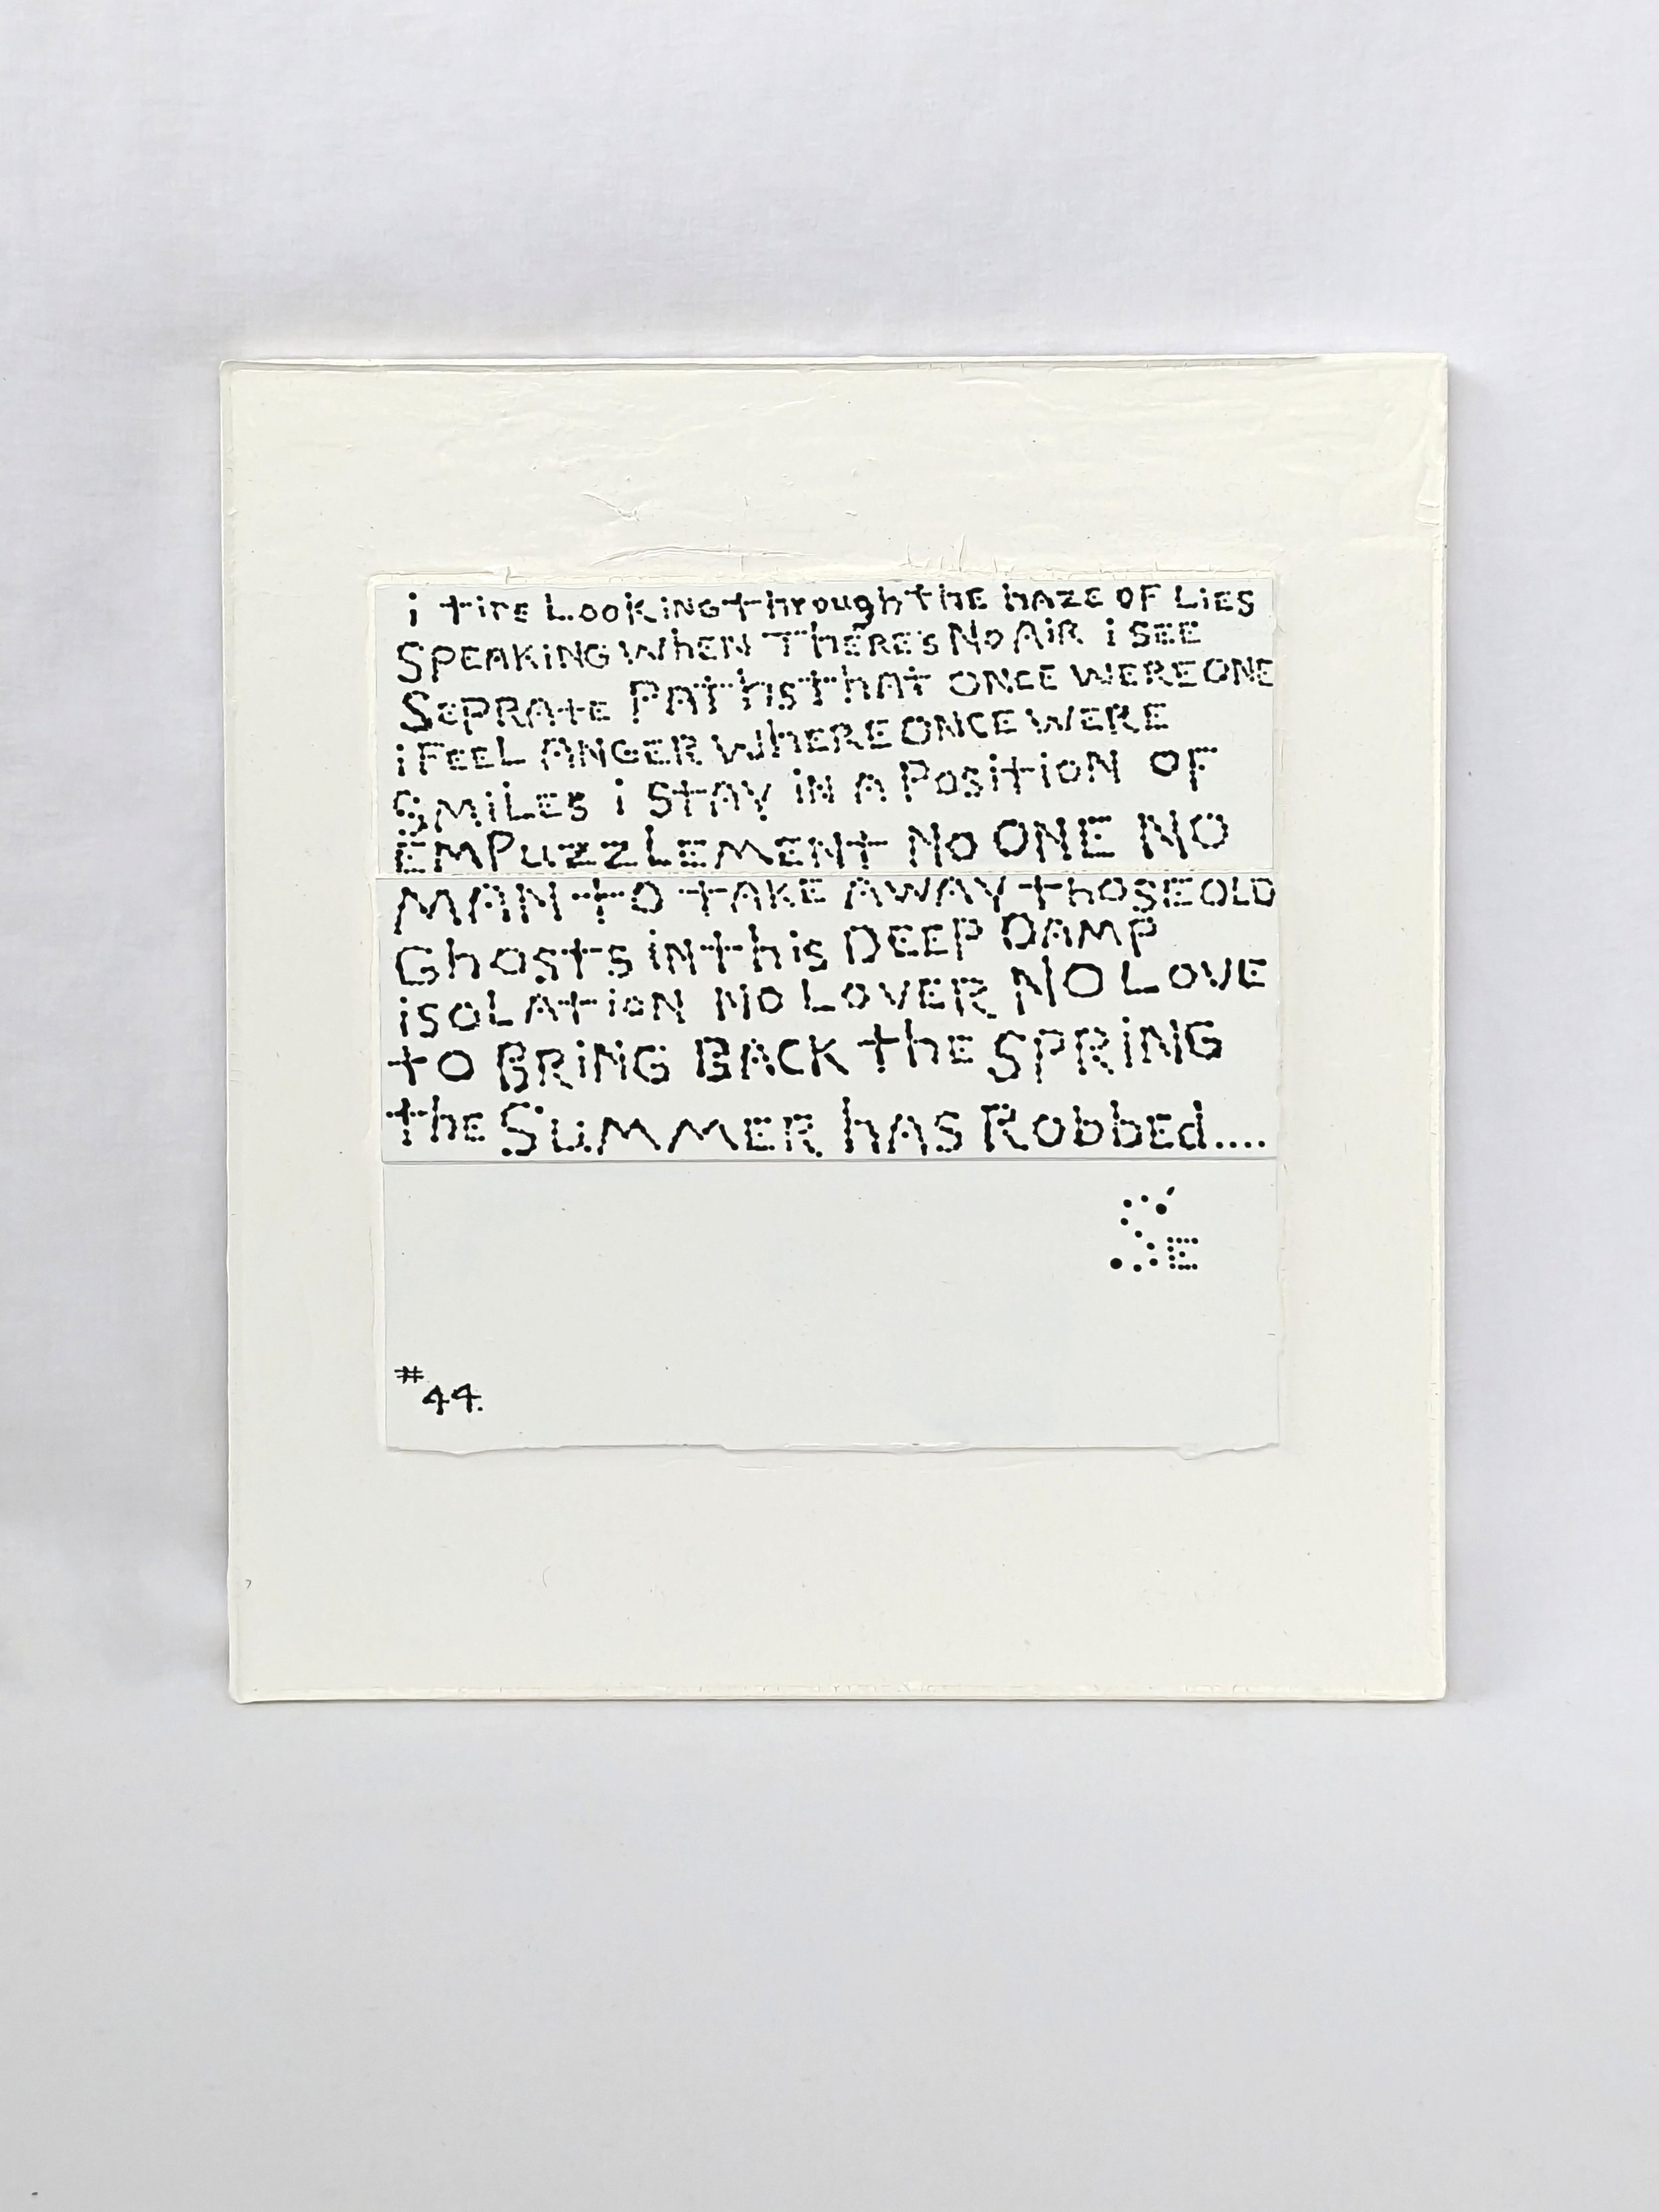 i tire LooKiNG through tHE hAZE OF LiES
SPEAKiNG WhEN ThERE'S No AiR i SEE
SEPRAtE PATHS ThAT ONCE WERE ONE
i FEEL ANGER WhERE ONCE WERE
SMiLES i STAY iN A POSitioN OF
EMPuzzLEMENt No ONE NO
MAN tO tAKE AWAY thOSE OLD
GhOStS iN this DEEP DAMP
iSOLAtioN NO LOVER NO LOVE
tO BRiNG BACK thE SPRiNG
thE SuMMER hAS RobbEd....
S'E
#44.